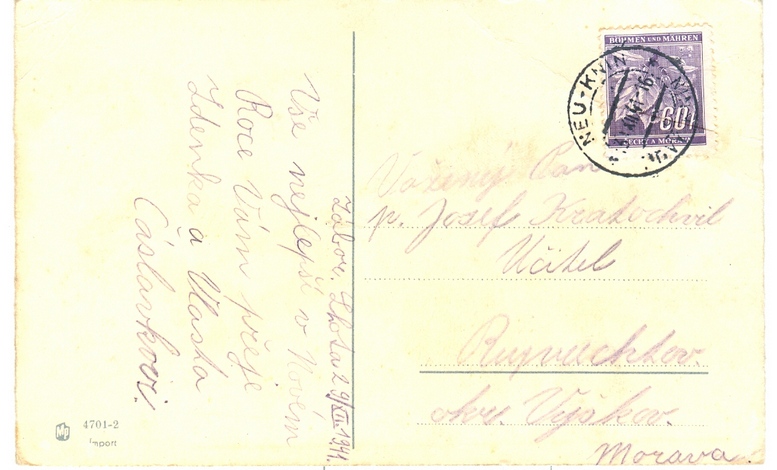 Zábor. Lhota 29/XII 1941.
Vše nejlepší v Novém
Roce Vám přeje
Zdenka a Vlasta
Čáslavkovi.
4701-2
Import
BÖHMEN UND MÄHREN
60
ČECHY A MORAVA
NEU-KNIN
Vážený Pan
p. Josef Kratochvil
Učitel
okr. Vyškov.
Morava